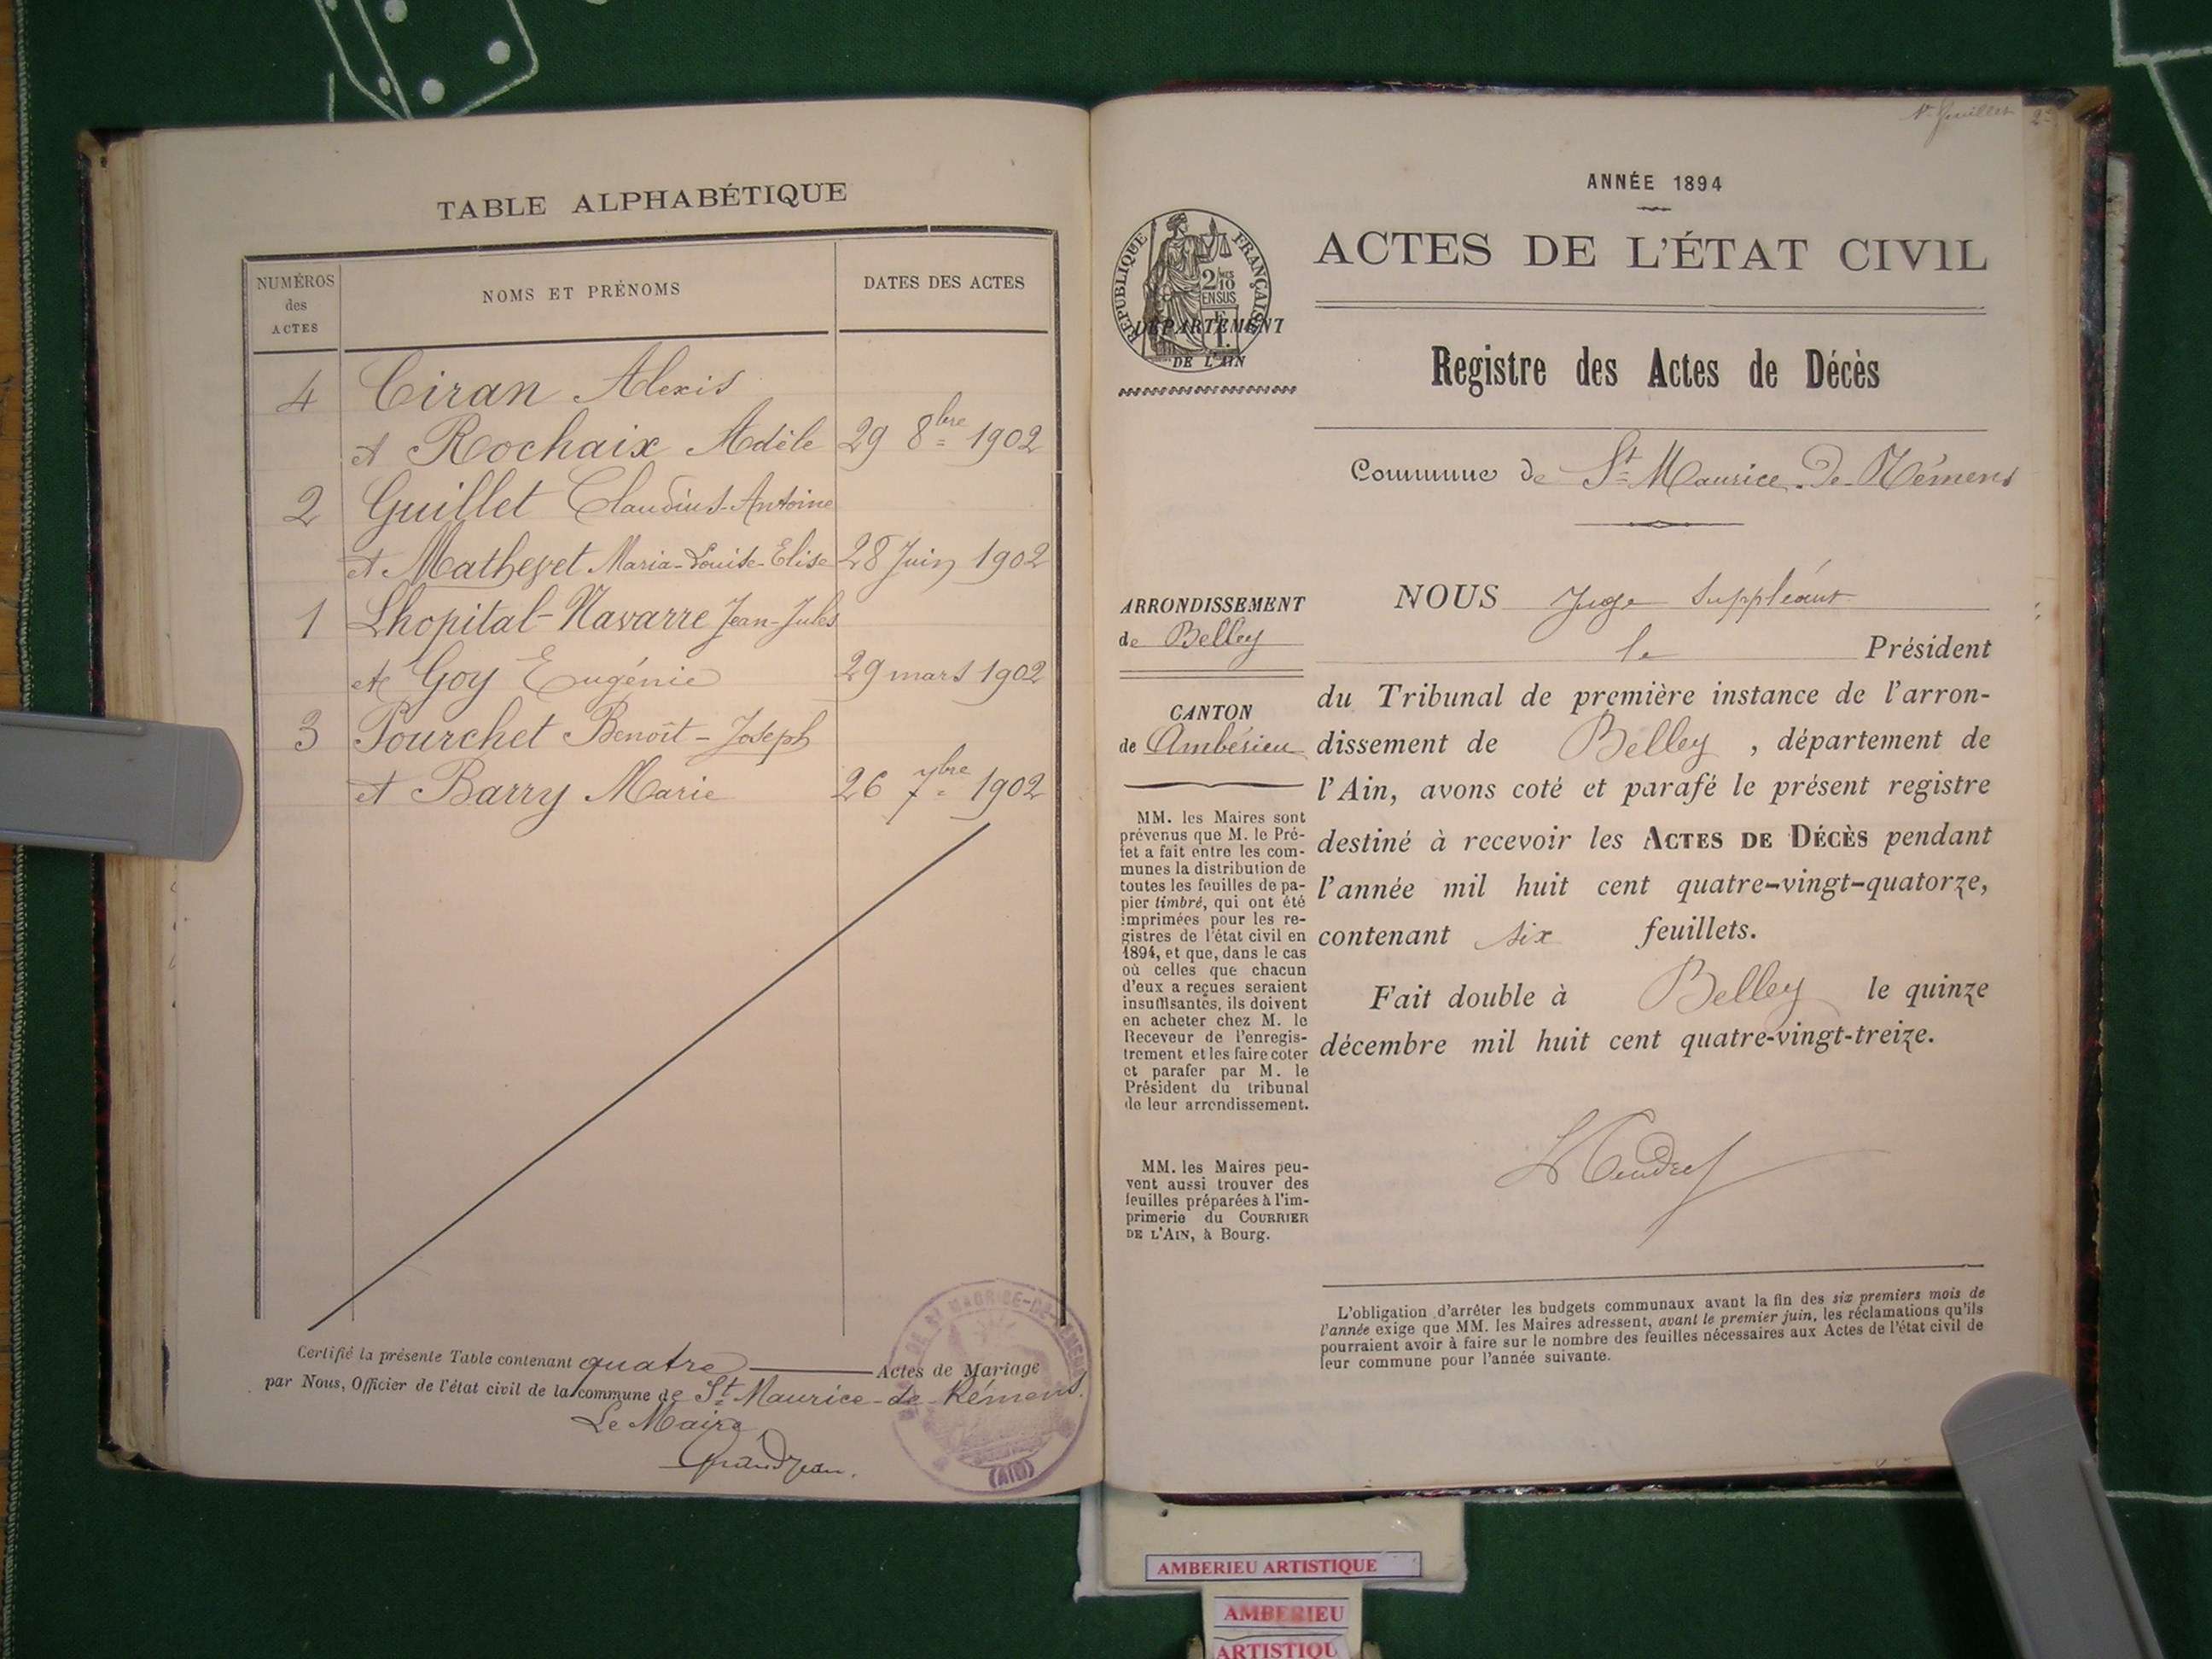 TABLE ALPHABÉTIQUE
NUMÉROS
des
ACTES
NOMS ET PRÉNOMS
DATES DES ACTES
4 Ciran Alexis
et Rochaix Adèle 29 8bre 1902
2 Guillet Claudius-Antoine
et Matheyet Maria-Louise-Elise 28 Juin 1902
1 Lhopital-Navarre Jean-Jules
et Goy Eugénie 29 mars 1902
3 Pourchet Benoît-Joseph
et Barry Marie 26 7bre 1902
Certifié la présente Table contenant quatre Actes de Mariage
par Nous, Officier de l'état civil de la commune de St Maurice-de-Rémens.
Le Maire
Grandjean.
(AIN)
1er feuillet
ANNÉE 1894
ACTES DE L'ÉTAT CIVIL
RÉPUBLIQUE FRANÇAISE
2/10
EN SUS
DÉPARTEMENT
DE L'AIN
Registre des Actes de Décès
Commune de St Maurice-De-Rémens
ARRONDISSEMENT
de Belley
CANTON
de Ambérieu
MM. les Maires sont
prévenus que M. le Pré-
fet a fait entre les com-
munes la distribution de
toutes les feuilles de pa-
pier timbré, qui ont été
imprimées pour les re-
gistres de l'état civil en
1894, et que, dans le cas
où celles que chacun
d'eux a reçues seraient
insuffisantes, ils doivent
en acheter chez M. le
Receveur de l'enregis-
trement et les faire coter
et parafer par M. le
Président du tribunal
de leur arrondissement.
MM. les Maires peu-
vent aussi trouver des
feuilles préparées à l'im-
primerie du COURRIER
DE L'AIN, à Bourg.
NOUS Juge Suppléant
le Président
du Tribunal de première instance de l'arron-
dissement de Belley, département de
l'Ain, avons coté et parafé le présent registre
destiné à recevoir les ACTES DE DÉCÈS pendant
l'année mil huit cent quatre-vingt-quatorze,
contenant six feuillets.
Fait double à Belley le quinze
décembre mil huit cent quatre-vingt-treize.
L'obligation d'arrêter les budgets communaux avant la fin des six premiers mois de
l'année exige que MM. les Maires adressent, avant le premier juin, les réclamations qu'ils
pourraient avoir à faire sur le nombre des feuilles nécessaires aux Actes de l'état civil de
leur commune pour l'année suivante.
AMBERIEU ARTISTIQUE
AMBERIEU
ARTISTIQU